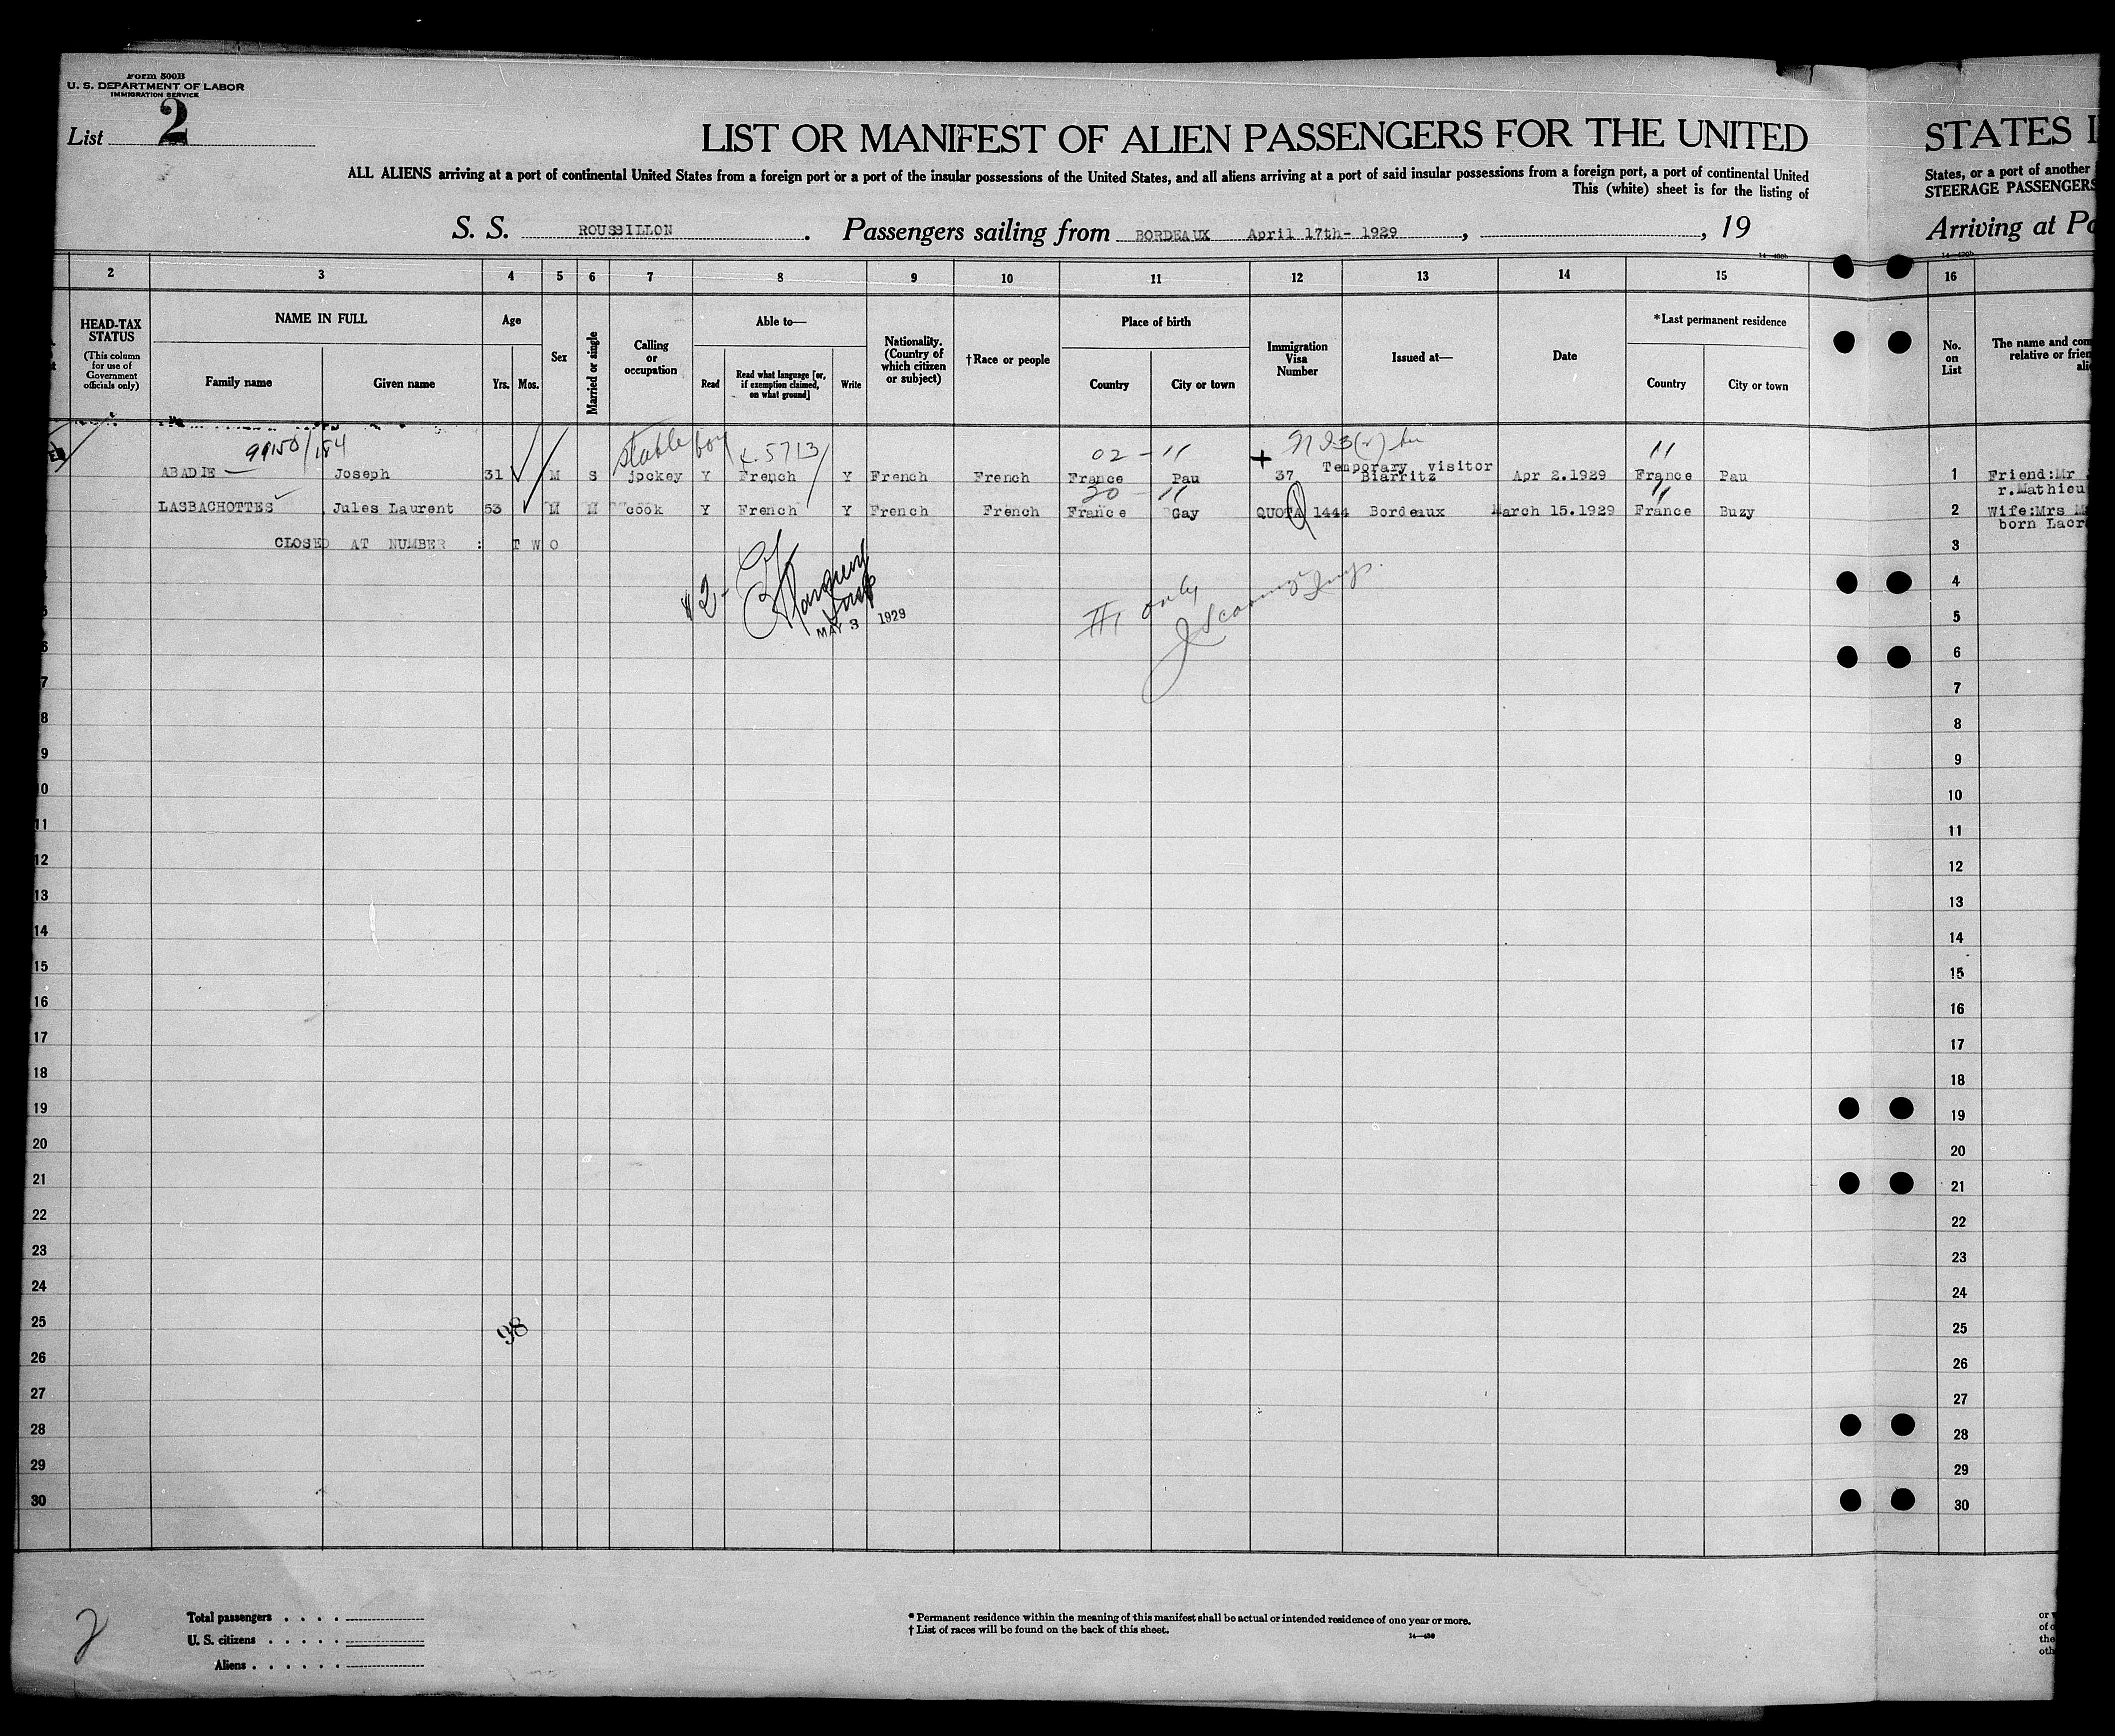 Form 500B
U. S. DEPARTMENT OF LABOR
IMMIGRATION SERVICE
List 2
LIST OR MANIFEST OF ALIEN PASSENGERS FOR THE UNITED
ALL ALIENS arriving at a port of continental United States from a foreign port or a port of the insular possessions of the United States, and all aliens arriving at a port of said insular possessions from a foreign port, a port of continental United
This (white) sheet is for the listing of
S. S. ROUSSILLON. Passengers sailing from BORDEAUX April 17th- 1929, , 19
STATES I
States, or a port of another
STEERAGE PASSENGERS
Arriving at Po
2 3 4 5 6 7 8 9 10 11 12 13 14 15 16
HEAD-TAX STATUS
(This column for use of Government officials only)
NAME IN FULL
Family name
Given name
Age
Yrs.
Mos.
Sex
Married or single
Calling or occupation
Able to—
Read
Read what language [or, if exemption claimed, on what ground]
Write
Nationality. (Country of which citizen or subject)
†Race or people
Place of birth
Country
City or town
Immigration Visa Number
Issued at—
Date
*Last permanent residence
Country
City or town
No. on List
The name and com
relative or frien
alie
99150/184 stable boy 5713 02 - 11 11
Temporary visitor
ABADIE Joseph 31 M S jockey Y French Y French French France Pau 37 Biarritz Apr 2.1929 France Pau 1 Friend:Mr
r.Mathieu
30 - 11 11
LASBACHOTTES Jules Laurent 53 M M cook Y French Y French French France Gay QUOTA 1444 Bordeaux March 15.1929 France Buzy 2 Wife:Mrs M
born Lacr
CLOSED AT NUMBER : T W O
3
4
#2-
only
MAY 3 1929
5 5
6 6
7 7
8 8
9 9
10 10
11 11
12 12
13 13
14 14
15 15
16 16
17 17
18 18
19 19
20 20
21 21
22 22
23 23
24 24
25 98 25
26 26
27 27
28 28
29 29
30 30
2
Total passengers
U. S. citizens
Aliens
* Permanent residence within the meaning of this manifest shall be actual or intended residence of one year or more.
† List of races will be found on the back of this sheet.
14—430
or
of
the
oth